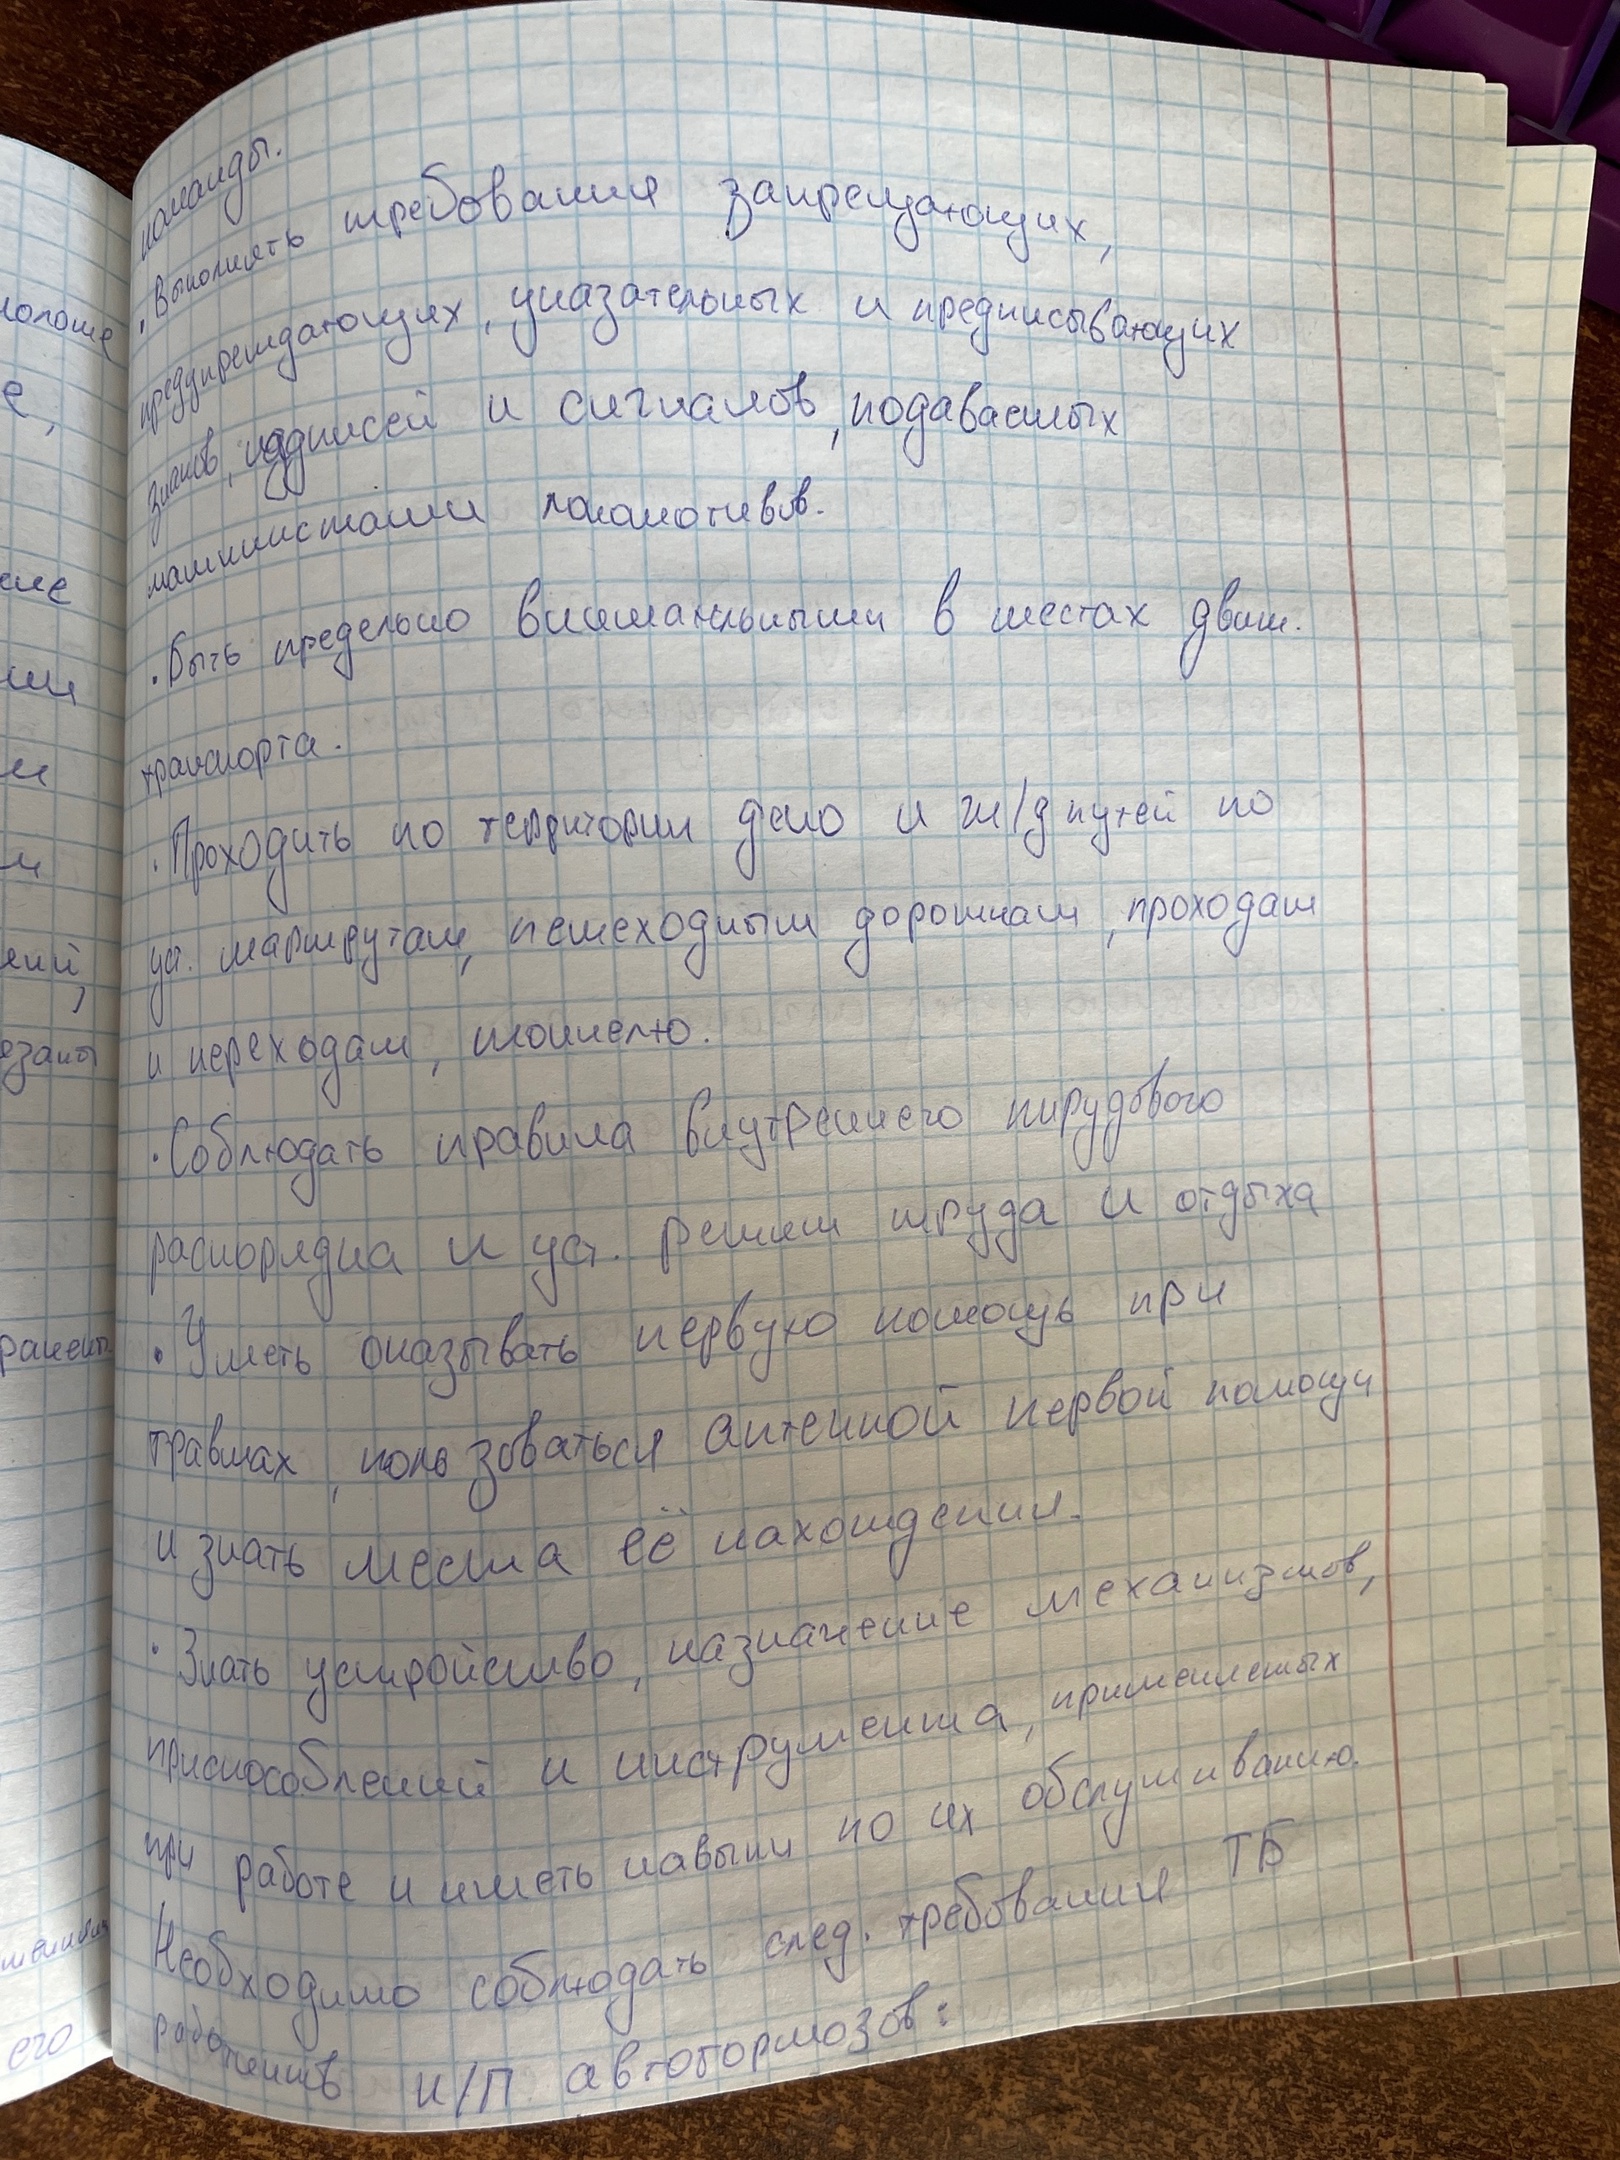 команды.
· Выполнять требования запрещающих,
предупреждающих, указательных и предписывающих
знаков, надписей и сигналов, подаваемых
машинистами локомотивов.
· Быть предельно внимательными в местах движ.
транспорта.
· Проходить по территории депо и ж/д путей по
уст. маршрутам, пешеходным дорожкам, проходам
и переходам, тоннелю.
· Соблюдать правила внутреннего трудового
распорядка и уст. режим труда и отдыха
· Уметь оказывать первую помощь при
травмах, пользоваться аптечкой первой помощи
и знать места её нахождения.
· Знать устройство, назначение механизмов,
приспособлений и инструмента, применяемых
при работе и иметь навыки по их обслуживанию.
Необходимо соблюдать след. требования ТБ
работников К/П автотормозов: